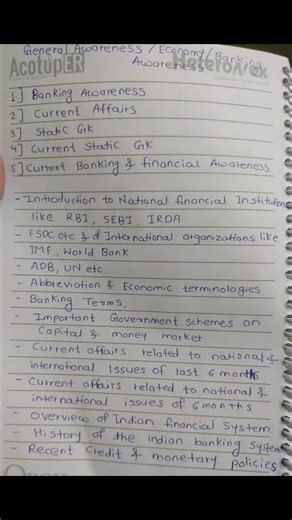 General Awareness / Economy / Banking
Awareness
AcotupER
Heterovox
1.] Banking Awareness
2] Current Affairs
3] Static GK
4] Current Static GK
5] Current Banking & financial Awareness
- Introduction to National financial Institution
like RBI, SEBI, IRDA
- FSDC etc & of International organizations like
IMF, World Bank
- ADB, UN etc.
- Abbreviation & Economic terminologies
- Banking Terms,
- Important Government schemes on
Capital & money market
- Current affairs related to national &
international Issues of last 6 months
- Current affairs related to national &
international issues of 6 months
- Overview of Indian financial System
- History of the Indian banking System
- Recent Credit & monetary policies